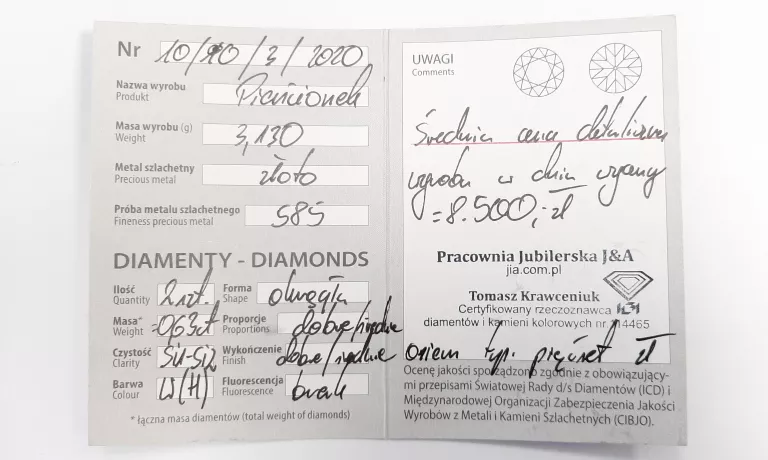 Nr 10/10/3/2020
Nazwa wyrobu Pierścionek
Produkt
Masa wyrobu (g) 3,130
Weight
Metal szlachetny złoto
Precious metal
Próba metalu szlachetnego 585
Fineness precious metal
DIAMENTY - DIAMONDS
Ilość 2 szt. Forma okrągła
Quantity Shape
Masa* =0,63ct Proporcje dobre/średnie
Weight Proportions
Czystość SI1-SI2 Wykończenie dobre/średnie
Clarity Finish
Barwa W(H) Fluorescencja brak
Colour Fluorescence
* łączna masa diamentów (total weight of diamonds)
UWAGI
Comments
Średnia cena detaliczna
wyrobu w dniu wyceny
=8.500,-zł
Pracownia Jubilerska J&A
jia.com.pl
Tomasz Krawceniuk
Certyfikowany rzeczoznawca
diamentów i kamieni kolorowych nr 14465
osiem tys. pięćset zł
Ocenę jakości sporządzono zgodnie z obowiązujący-
mi przepisami Światowej Rady d/s Diamentów (ICD) i
Międzynarodowej Organizacji Zabezpieczenia Jakości
Wyrobów z Metali i Kamieni Szlachetnych (CIBJO).